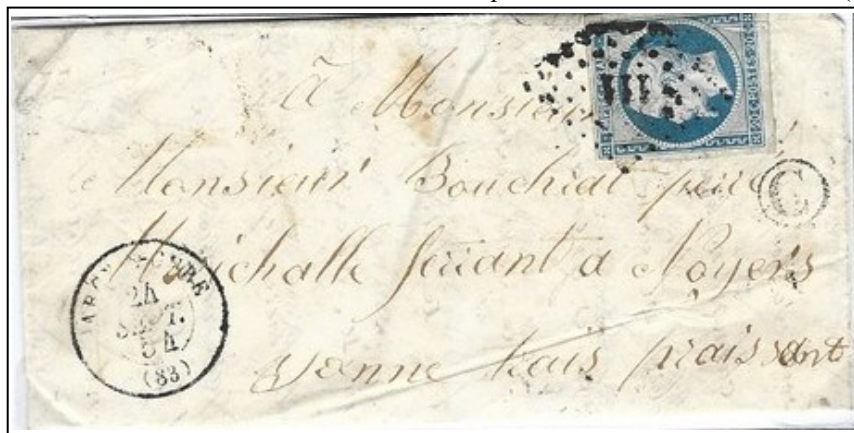 à Monsieur
Monsieur Bouchrat père
Marichalle ferrant a Noyers
yonne trais praissant
C
24
SEPT.
54
(83)
POSTES